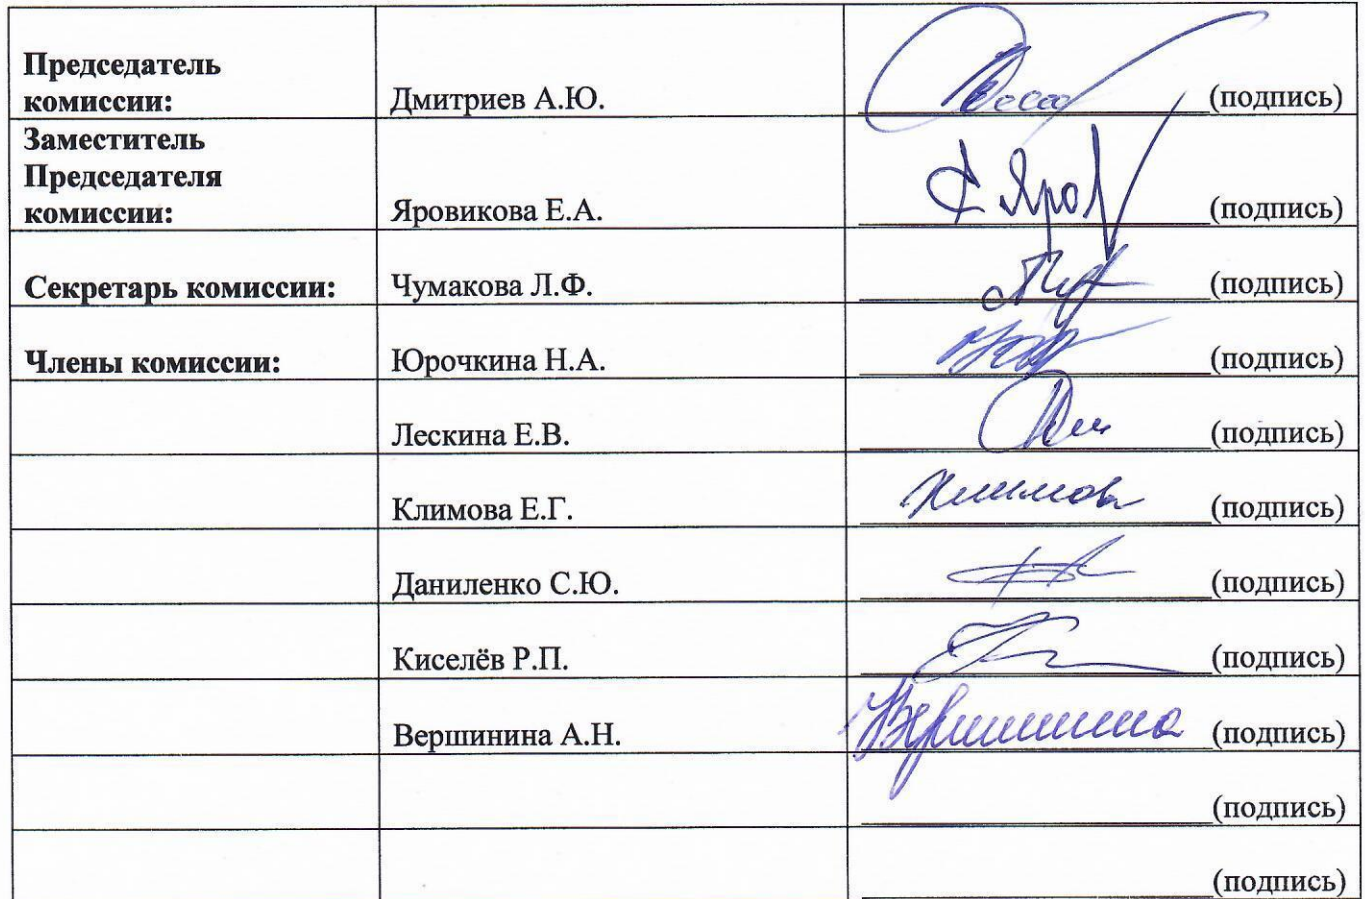 Председатель
комиссии: Дмитриев А.Ю. (подпись)
Заместитель
Председателя
комиссии: Яровикова Е.А. (подпись)
Секретарь комиссии: Чумакова Л.Ф. (подпись)
Члены комиссии: Юрочкина Н.А. (подпись)
Лескина Е.В. (подпись)
Климова Е.Г. Климова (подпись)
Даниленко С.Ю. (подпись)
Киселёв Р.П. (подпись)
Вершинина А.Н. Вершинина (подпись)
(подпись)
(подпись)